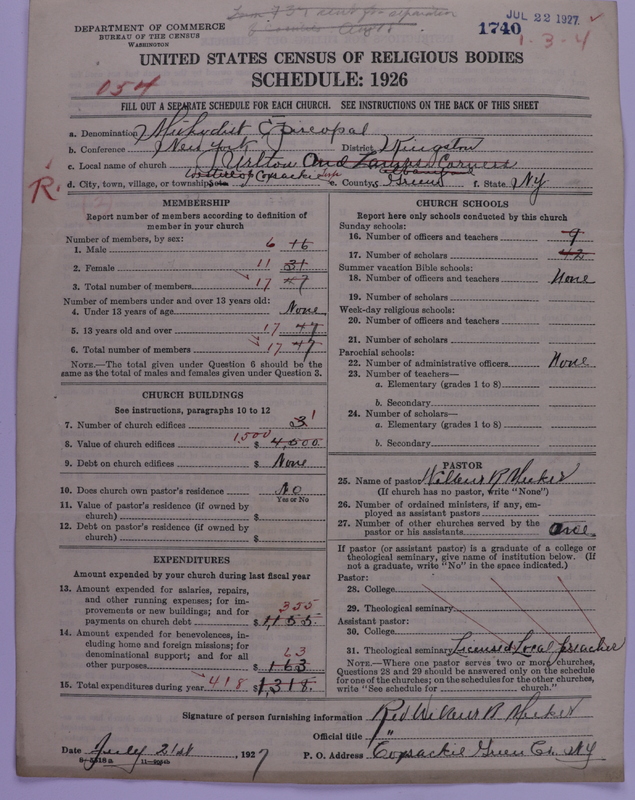 DEPARTMENT OF COMMERCE
BUREAU OF THE CENSUS
WASHINGTON
1740
JUL 22 1927
1-3-4
UNITED STATES CENSUS OF RELIGIOUS BODIES
SCHEDULE: 1926
054
FILL OUT A SEPARATE SCHEDULE FOR EACH CHURCH. SEE INSTRUCTIONS ON THE BACK OF THIS SHEET
a. Denomination Methodist Episcopal
b. Conference New York District Kingston
c. Local name of church Urlton And Corners
R.
d. City, town, village, or township Coxsackie e. County Greene f. State NY
MEMBERSHIP
Report number of members according to definition of
member in your church
Number of members, by sex:
1. Male 6 16
2. Female 11 31
3. Total number of members 17 47
Number of members under and over 13 years old:
4. Under 13 years of age None
5. 13 years old and over 17 47
6. Total number of members 17 47
NOTE.—The total given under Question 6 should be the
same as the total of males and females given under Question 3.
CHURCH BUILDINGS
See instructions, paragraphs 10 to 12
7. Number of church edifices 3 1
8. Value of church edifices 1,500 $ 4,500.
9. Debt on church edifices $ None
10. Does church own pastor's residence No
Yes or No
11. Value of pastor's residence (if owned by
church) $
12. Debt on pastor's residence (if owned by
church) $
EXPENDITURES
Amount expended by your church during last fiscal year
13. Amount expended for salaries, repairs,
and other running expenses; for im-
provements or new buildings; and for
payments on church debt 355 $ 1,155.
14. Amount expended for benevolences, in-
cluding home and foreign missions; for
denominational support; and for all
other purposes 63 $ 163
15. Total expenditures during year 418 $ 1,318.
CHURCH SCHOOLS
Report here only schools conducted by this church
Sunday schools:
16. Number of officers and teachers 9
17. Number of scholars 42
Summer vacation Bible schools:
18. Number of officers and teachers None
19. Number of scholars
Week-day religious schools:
20. Number of officers and teachers
21. Number of scholars
Parochial schools:
22. Number of administrative officers None
23. Number of teachers—
a. Elementary (grades 1 to 8)
b. Secondary
24. Number of scholars—
a. Elementary (grades 1 to 8)
b. Secondary
PASTOR
25. Name of pastor Wilbur R Meeker
(If church has no pastor, write "None")
26. Number of ordained ministers, if any, em-
ployed as assistant pastors
27. Number of other churches served by the
pastor or his assistants One
If pastor (or assistant pastor) is a graduate of a college or
theological seminary, give name of institution below. (If
not a graduate, write "No" in the space indicated.)
Pastor:
28. College
29. Theological seminary
Assistant pastor:
30. College
31. Theological seminary Licensed Local preacher
NOTE.—Where one pastor serves two or more churches,
Questions 28 and 29 should be answered only on the schedule
for one of the churches; on the schedules for the other churches,
write "See schedule for church."
Signature of person furnishing information Rev Wilbur R Meeker
Official title "
Date July 21st, 1927 P. O. Address Coxsackie Green Co. NY